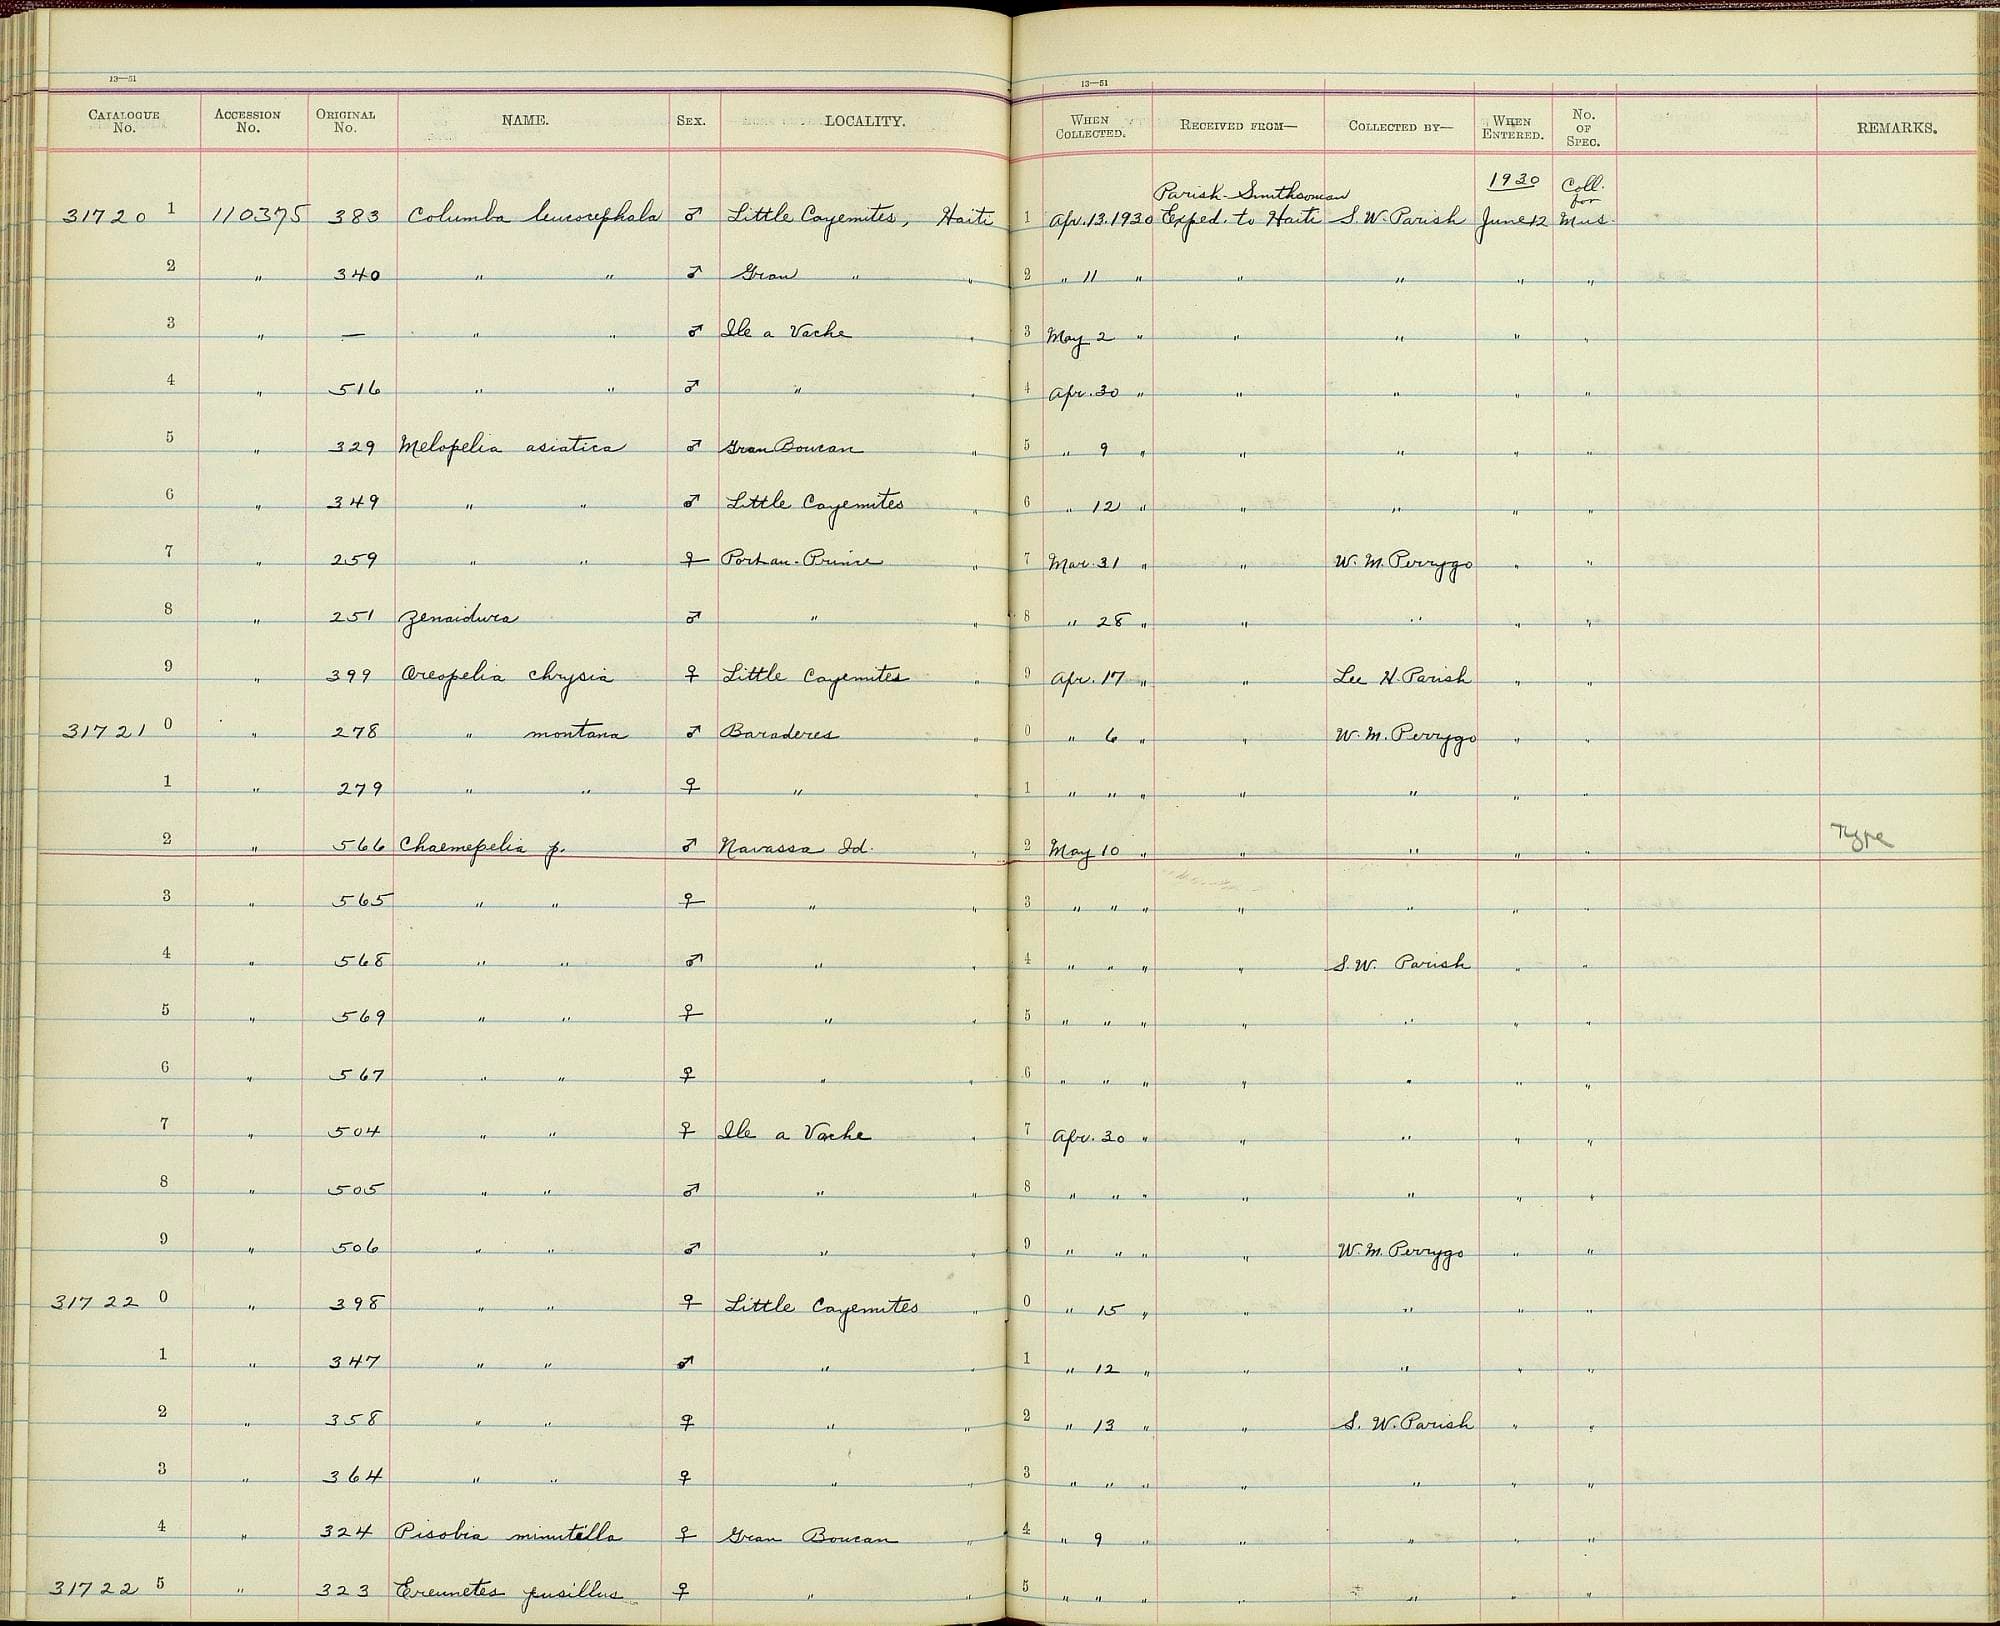 13—51
CATALOGUE No. ACCESSION No. ORIGINAL No. NAME. SEX. LOCALITY.
13—51
WHEN COLLECTED. RECEIVED FROM— COLLECTED BY— WHEN ENTERED. No. OF SPEC. REMARKS.
31720 1 110375 383 Columba leucocephala ♂ Little Cayemites, Haiti 1 Apr. 13. 1930 Parish-Smithsonian Exped. to Haiti S. W. Parish 1930 June 12 Coll. for Mus.
2 " 340 " " ♂ Gran " " 2 " 11 " " " " "
3 " — " " ♂ Ile a Vache " 3 May 2 " " " " "
4 " 516 " " ♂ " " 4 Apr. 30 " " " " "
5 " 329 Melopelia asiatica ♂ Gran Boucan " 5 " 9 " " " " "
6 " 349 " " ♂ Little Cayemites " 6 " 12 " " " " "
7 " 259 " " ♀ Port au-Prince " 7 Mar. 31 " " W. M. Perrygo " "
8 " 251 Zenaidura ♂ " " 8 " 28 " " " " "
9 " 399 Oreopelia chrysia ♀ Little Cayemites " 9 Apr. 17 " " Lee H. Parish " "
31721 0 " 278 " montana ♂ Baraderes " 0 " 6 " " W. M. Perrygo " "
1 " 279 " " ♀ " " 1 " " " " " " "
2 " 566 Chaemepelia p. ♂ Navassa Id. " 2 May 10 " " " " " Type
3 " 565 " " ♀ " " 3 " " " " " " "
4 " 568 " " ♂ " " 4 " " " " S. W. Parish " "
5 " 569 " " ♀ " " 5 " " " " " " "
6 " 567 " " ♀ " " 6 " " " " " " "
7 " 504 " " ♀ Ile a Vache " 7 Apr. 30 " " " " "
8 " 505 " " ♂ " " 8 " " " " " " "
9 " 506 " " ♂ " " 9 " " " " W. M. Perrygo " "
31722 0 " 398 " " ♀ Little Cayemites " 0 " 15 " " " " "
1 " 347 " " ♂ " " 1 " 12 " " " " "
2 " 358 " " ♀ " " 2 " 13 " " S. W. Parish " "
3 " 364 " " ♀ " " 3 " " " " " " "
4 " 324 Pisobia minutilla ♀ Gran Boucan " 4 " 9 " " " " "
31722 5 " 323 Ereunetes pusillus ♀ " " 5 " " " " " " "